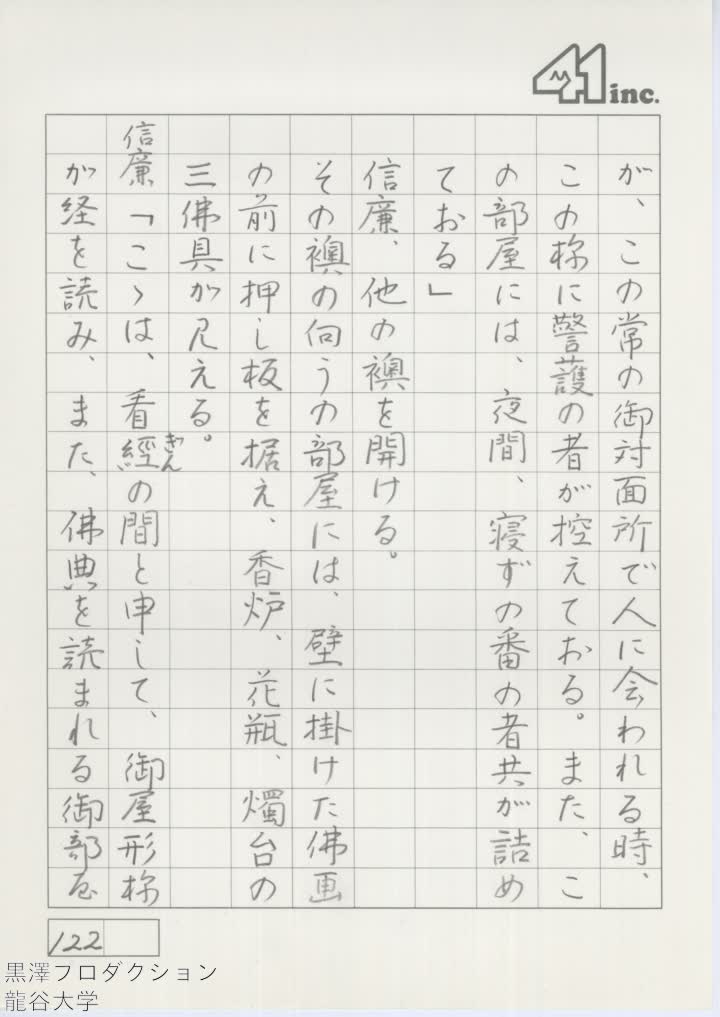 41 inc.
が、この常の御対面所で人に会われる時、
この様に警護の者が控えておる。また、こ
の部屋には、夜間、寝ずの番の者共が詰め
ておる」
信廉、他の襖を開ける。
その襖の向うの部屋には、壁に掛けた佛画
の前に押し板を据え、香炉、花瓶、燭台の
三佛具が見える。
信廉「こゝは、看經の間と申して、御屋形様
ぎん
が経を読み、また、佛典を読まれる御部屋
122
黒澤プロダクション
龍谷大学